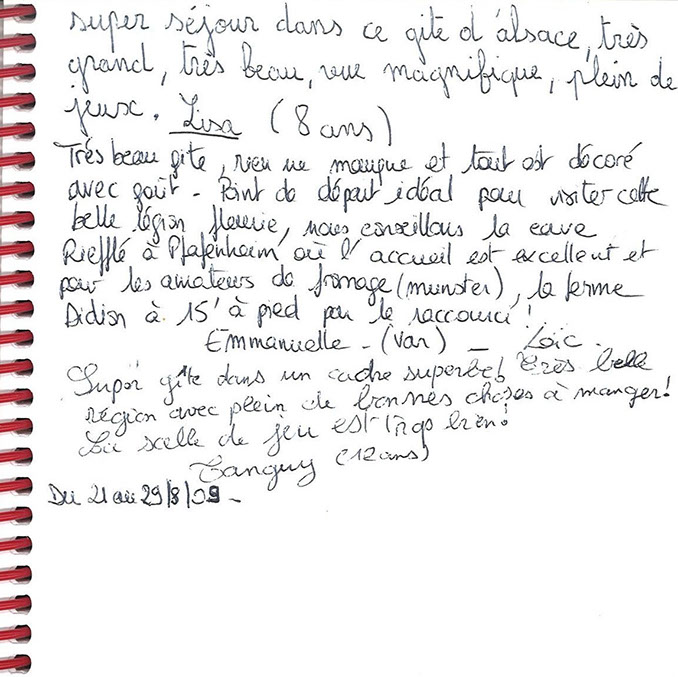 super séjour dans ce gite d'alsace, très
grand, très beau, vue magnifique, plein de
jeux. Lisa (8 ans)
Très beau gite, rien ne manque et tout est décoré
avec goût - Point de départ idéal pour visiter cette
belle région fleurie, nous conseillons la cave
Riefflé à Pfafenheim où l'accueil est excellent et
pour les amateurs de fromage (munster), la ferme
Didion à 15' à pied par le raccourci !
Emmanuelle - (Var) - Loïc.
Super gîte dans un cadre superbe! très belle
région avec plein de bonnes choses à manger!
La salle de jeu est trop bien!
Tanguy (12 ans)
Du 21 au 29/8/09 -